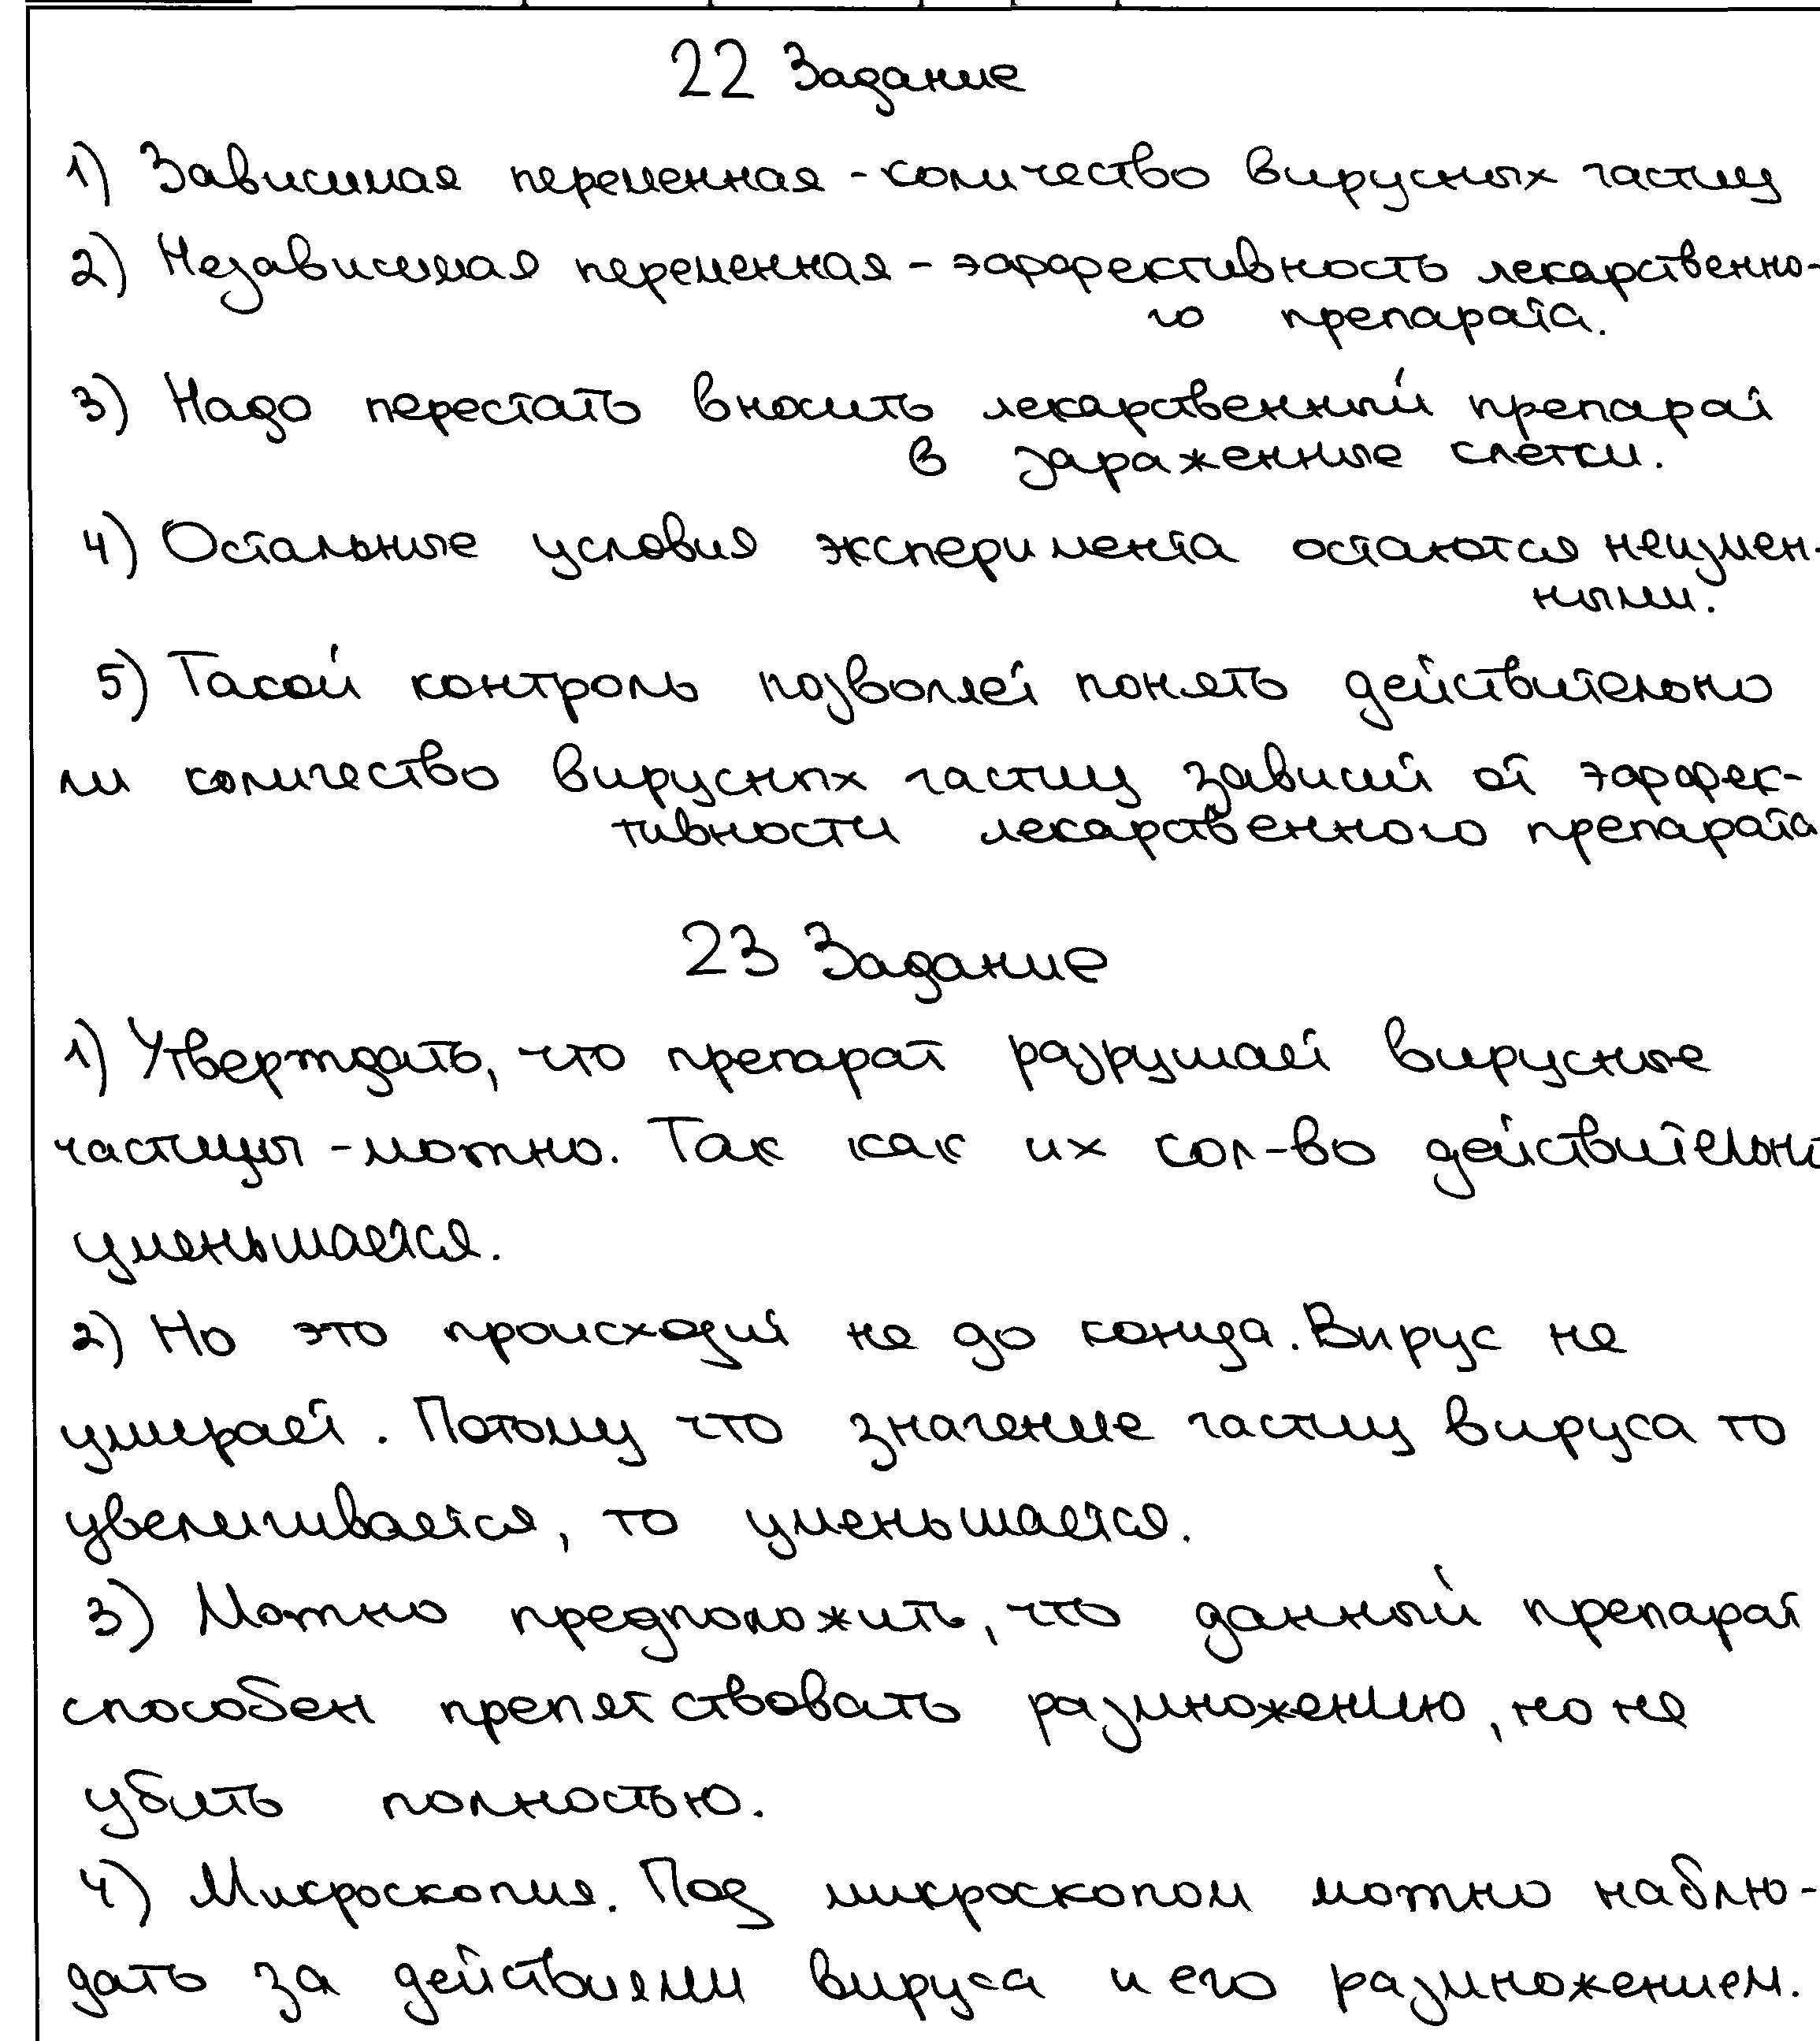 22 Задание
1) Зависимая переменная - количество вирусных частиц
2) Независимая переменная - эффективность лекарственно-
го препарата.
3) Надо перестать вносить лекарственный препарат
в зараженные клетки.
4) Остальные условия эксперимента остаются неизмен-
ными.
5) Такой контроль позволяет понять действительно
ли количество вирусных частиц зависит от эффек-
тивности лекарственного препарата
23 Задание
1) Утверждать, что препарат разрушает вирусные
частицы - можно. Так как их кол-во действительно
уменьшается.
2) Но это происходит не до конца. Вирус не
умирает. Потому что значение частиц вируса то
увеличивается, то уменьшается.
3) Можно предположить, что данный препарат
способен препятствовать размножению, но не
убить полностью.
4) Микроскопия. Под микроскопом можно наблю-
дать за действиями вируса и его размножением.